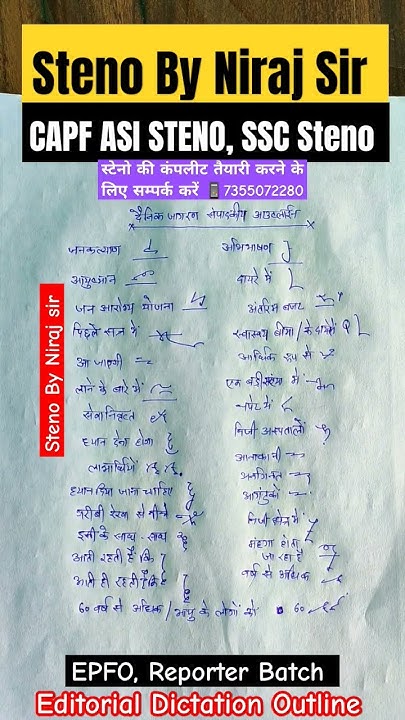 Steno By Niraj Sir
CAPF ASI STENO, SSC Steno
स्टेनो की कंपलीट तैयारी करने के
लिए सम्पर्क करें 📱7355072280
दैनिक जागरण संपादकीय आउटलाईन
जनकल्याण
अभिभाषण
आयुष्मान
दायरे में
जन आरोग्य योजना
अंतरिम बजट
पिछले सत्र में
स्वास्थ्य बीमा / के दायरे
आ जाएगी
आर्थिक रूप से
लाने के बारे में
एक बड़ी संख्या में
सेवानिवृत्त
चपेट में
ध्यान देना होगा
निजी अस्पतालों
लाभार्थियों
आनाकानी
ध्यान दिया जाना चाहिए
अनगिनत
गरीबी रेखा से नीचे
आगंतुकों
इसी के साथ-साथ
निजी क्षेत्र में
आती रहती है कि
महंगा होता
जा रहा है
आती ही रहती है कि
वर्ष से अधिक
60 वर्ष से अधिक / आयु के लोगों को 60
Steno By Niraj sir
EPFO, Reporter Batch
Editorial Dictation Outline